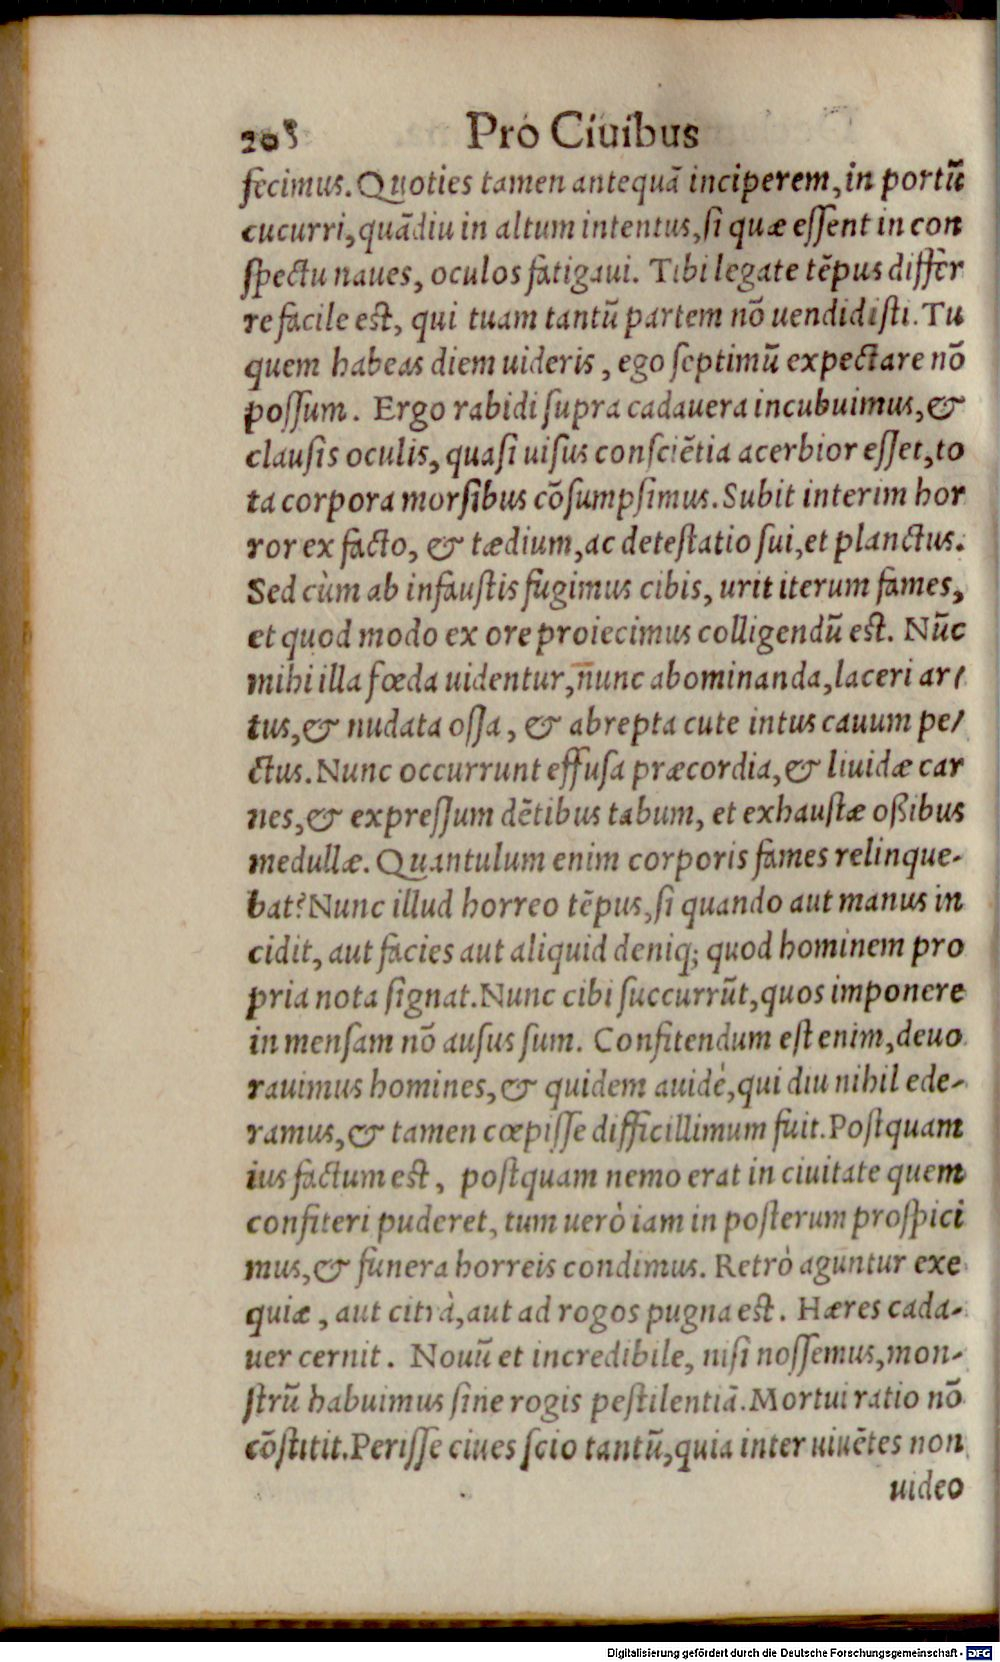 208 Pro Ciuibus
fecimus. Quoties tamen antequā inciperem, in portū
cucurri, quādiu in altum intentus, si quæ essent in con
spectu naues, oculos fatigaui. Tibi legate tēpus differ
re facile est, qui tuam tantū partem nō uendidisti. Tu
quem habeas diem uideris, ego septimū expectare nō
possum. Ergo rabidi supra cadauera incubuimus, &
clausis oculis, quasi uisus consciētia acerbior esset, to
ta corpora morsibus cōsumpsimus. Subit interim hor
ror ex facto, & tædium, ac detestatio sui, et planctus.
Sed cùm ab infaustis fugimus cibis, urit iterum fames,
et quod modo ex ore proiecimus colligendū est. Nūc
mihi illa fœda uidentur, nunc abominanda, laceri ar/
tus, & nudata ossa, & abrepta cute intus cauum pe/
ctus. Nunc occurrunt effusa præcordia, & liuidæ car
nes, & expressum dētibus tabum, et exhaustæ oßibus
medullæ. Quantulum enim corporis fames relinque-
bat? Nunc illud horreo tēpus, si quando aut manus in
cidit, aut facies aut aliquid deniq; quod hominem pro
pria nota signat. Nunc cibi succurrūt, quos imponere
in mensam nō ausus sum. Confitendum est enim, deuo
rauimus homines, & quidem auidè, qui diu nihil ede-
ramus, & tamen cœpisse difficillimum fuit. Postquam
ius factum est, postquam nemo erat in ciuitate quem
confiteri puderet, tum uerò iam in posterum prospici
mus, & funera horreis condimus. Retrò aguntur exe
quiæ, aut citrà, aut ad rogos pugna est. Hæres cada-
uer cernit. Nouū et incredibile, nisi nossemus, mon-
strū habuimus sine rogis pestilentiā. Mortui ratio nō
cōstitit. Perisse ciues scio tantū, quia inter uiuētes non
uideo
Digitalisierung gefördert durch die Deutsche Forschungsgemeinschaft - DFG